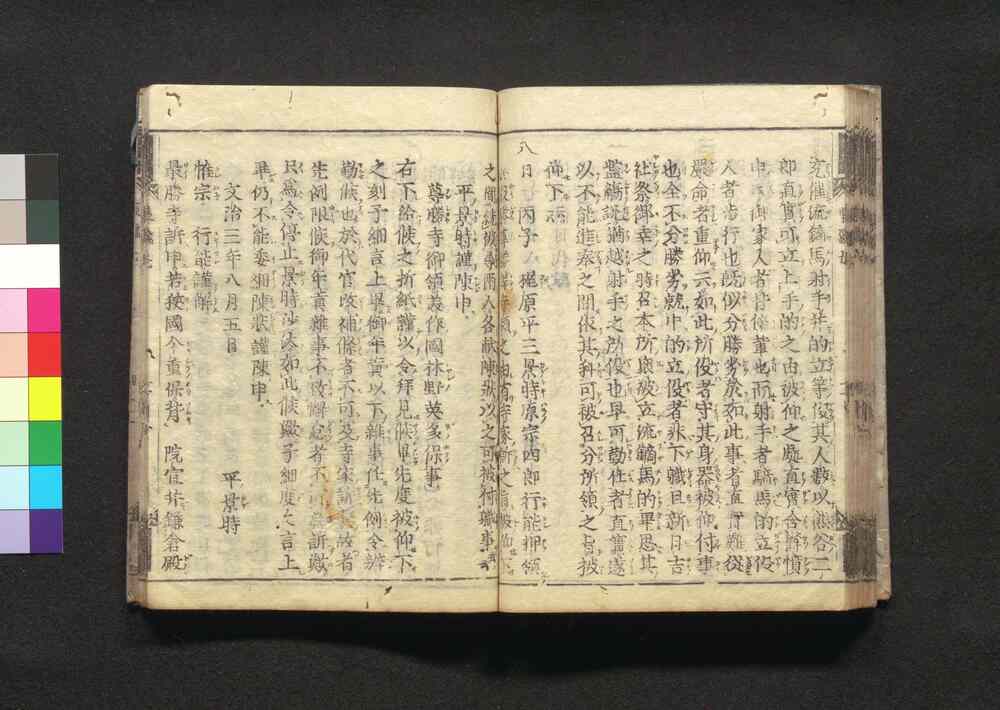 充催流鏑馬射手并的立等役其人數以熊谷二
郎直實可立上手的之由被仰之處直實含欝憤
申云御家人者皆傍輩也而射手者騎馬的立役
人者步行也既似分勝劣於如此事者直實難從
嚴命者重仰云如此所役者守其身器被仰付事
也全不分勝劣就中的立役者非下職且新日吉
社祭御幸之時召本所衆被立流鏑馬的畢思其
濫觴訖猶越射手之所役也早可勤仕者直實遂
以不能進奉之間依其科可被召分所領之旨被
仰下云
八日 丙子 梶原平三景時原宗四郎行能押領
之間就被尋兩人各献陳狀以之可被付職事云
平景時謹陳申
尊勝寺御領美作國林野英多保事
右下給候之折紙謹以令拜見候畢先度被仰下
之刻子細言上畢御年貢以下雜事任先例令辨
勤候也於代官改補條者不可及寺家訴
先例限候御年貢雜事不致懈怠者不
民爲令停止景時沙汰如此候歟子細度々言上
畢仍不能委細陳狀謹陳申
文治三年八月五日
平景時
惟宗 行能謹解
最勝寺訴申若狹國今重保背 院宣并鎌倉殿